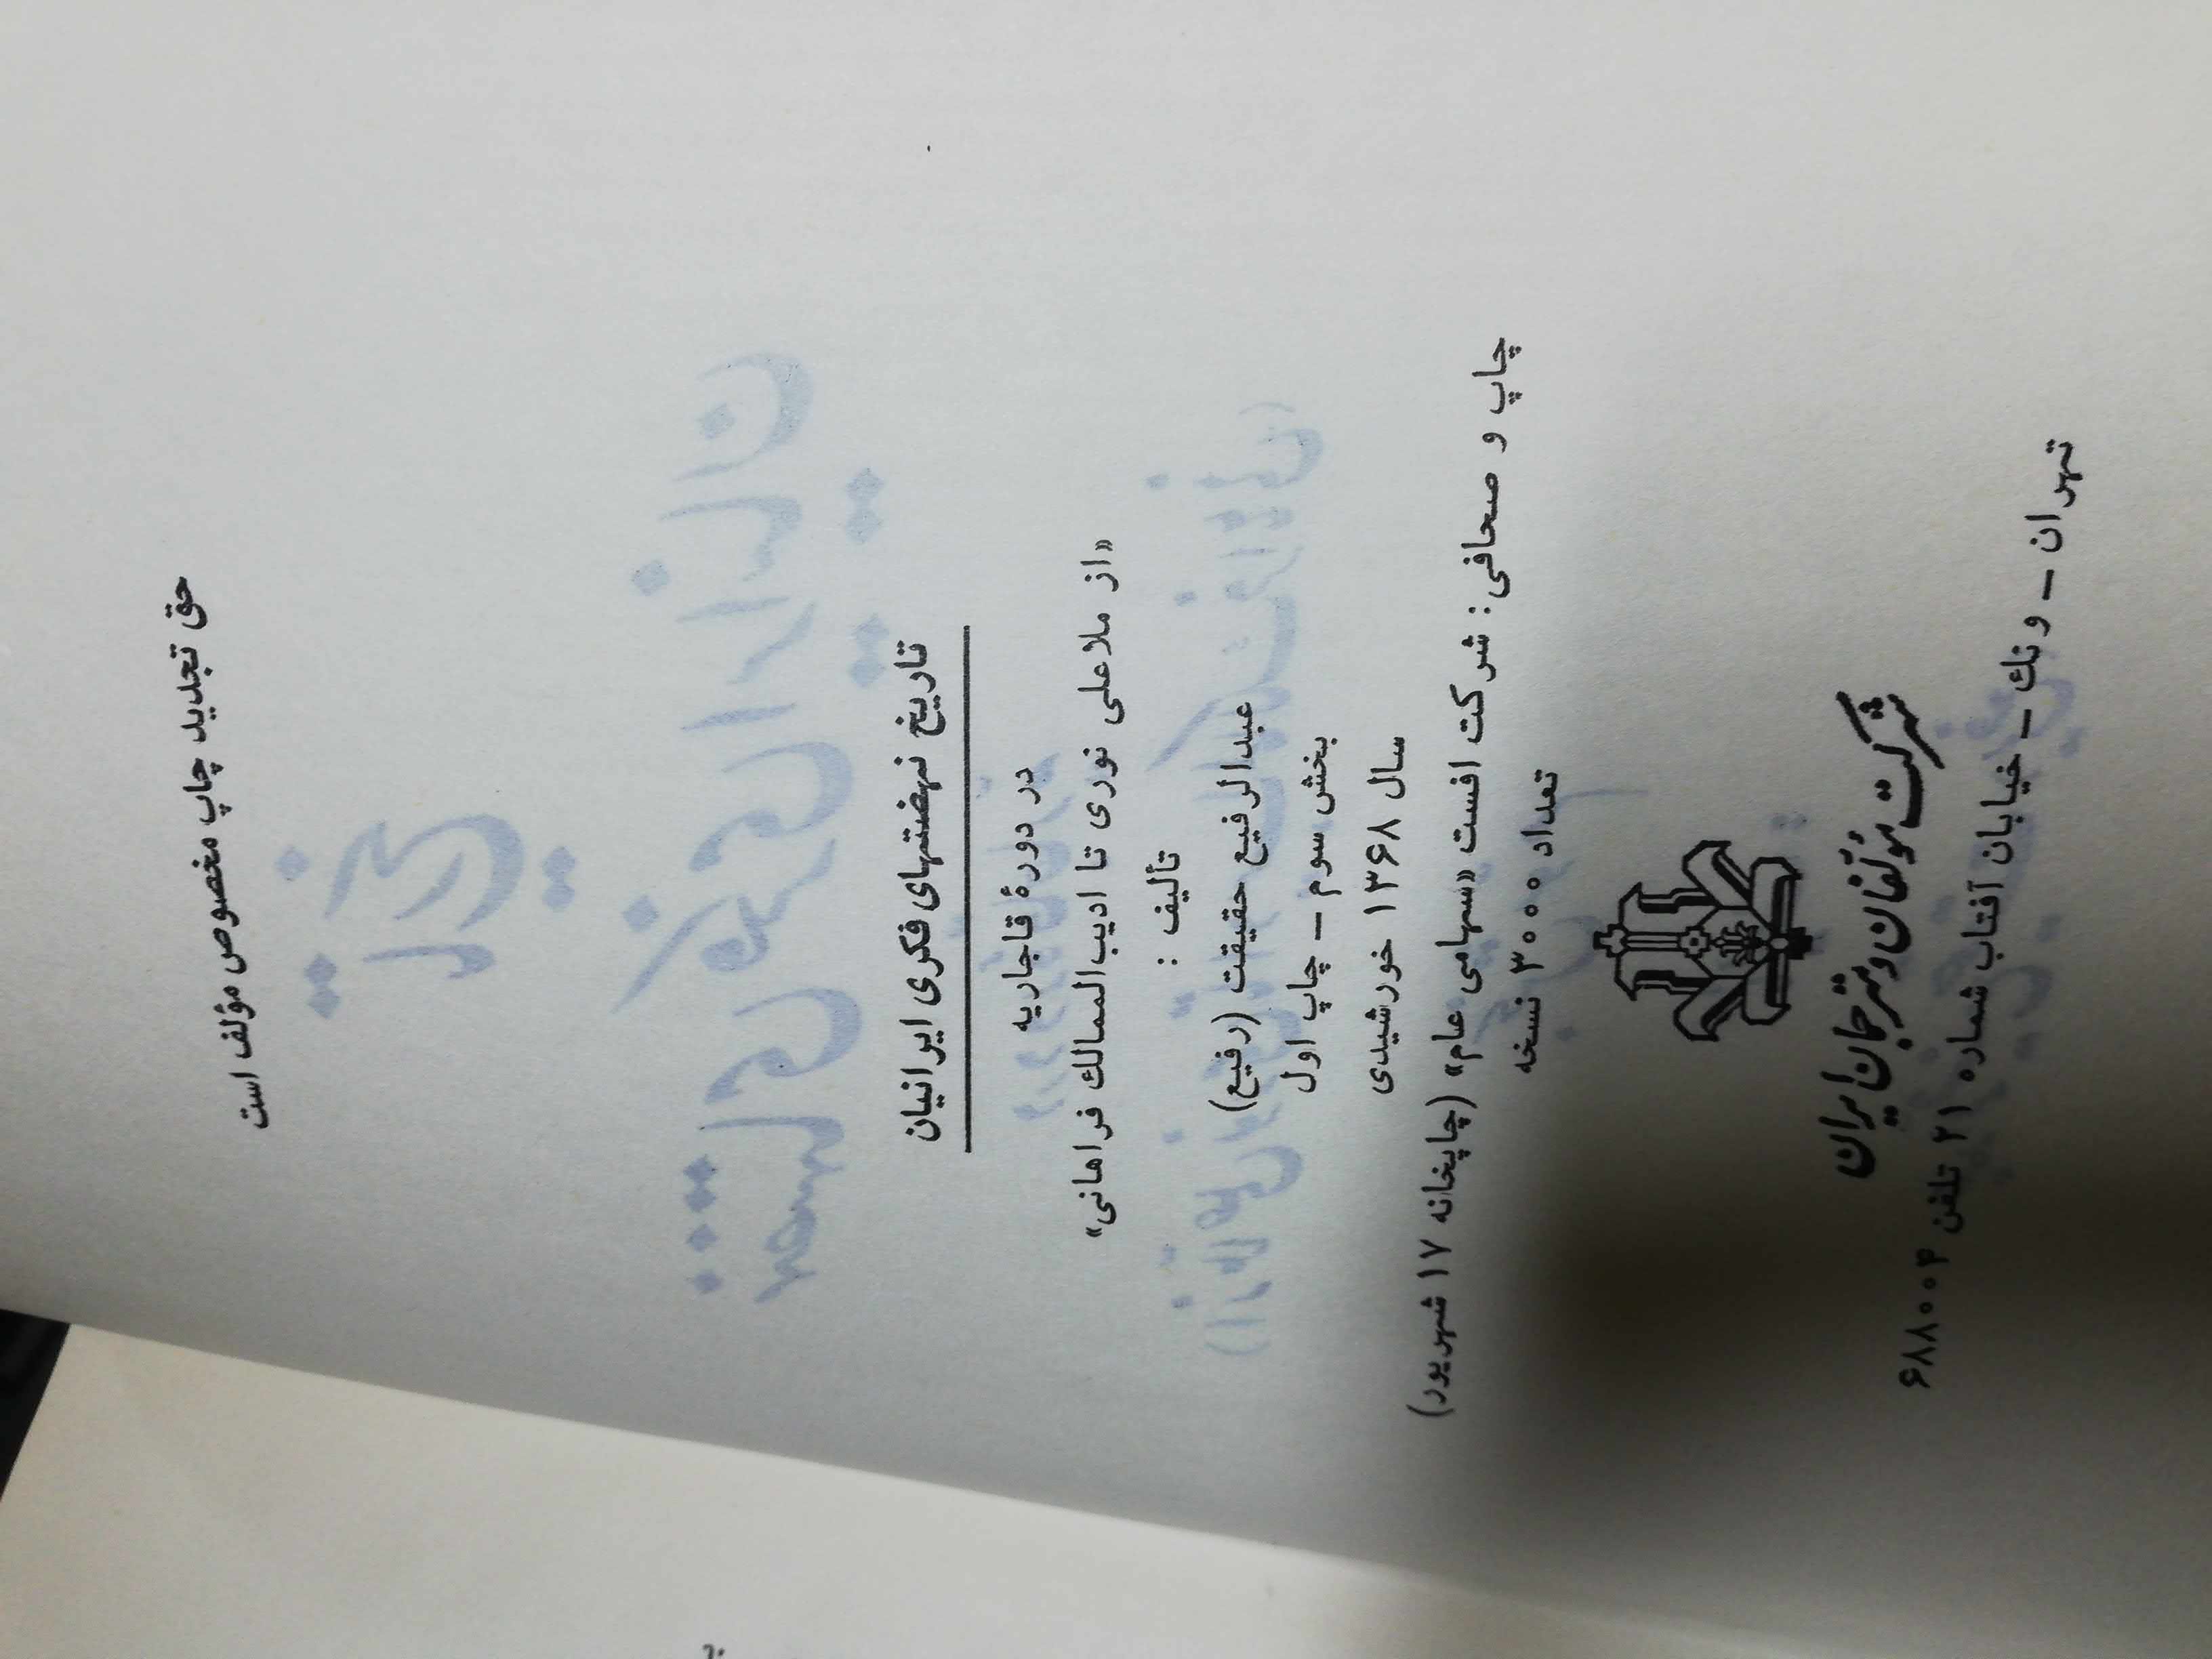 حق تجدید چاپ مخصوص مؤلف است
تاریخ نهضتهای فکری ایرانیان
در دورهٔ قاجاریه
«از ملاعلی نوری تا ادیب‌الممالك فراهانی»
تألیف :
عبدالرفیع حقیقت (رفیع)
بخش سوم – چاپ اول
سال ۱۳۶۸ خورشیدی
چاپ و صحافی: شرکت افست «سهامی عام» (چاپخانه ۱۷ شهریور)
تعداد ۳۰۰۰ نسخه
شرکت مؤلفان و مترجمان ایران
تهران – ونك – خیابان آفتاب شماره ۲۱ تلفن ۶۸۸۰۰۴